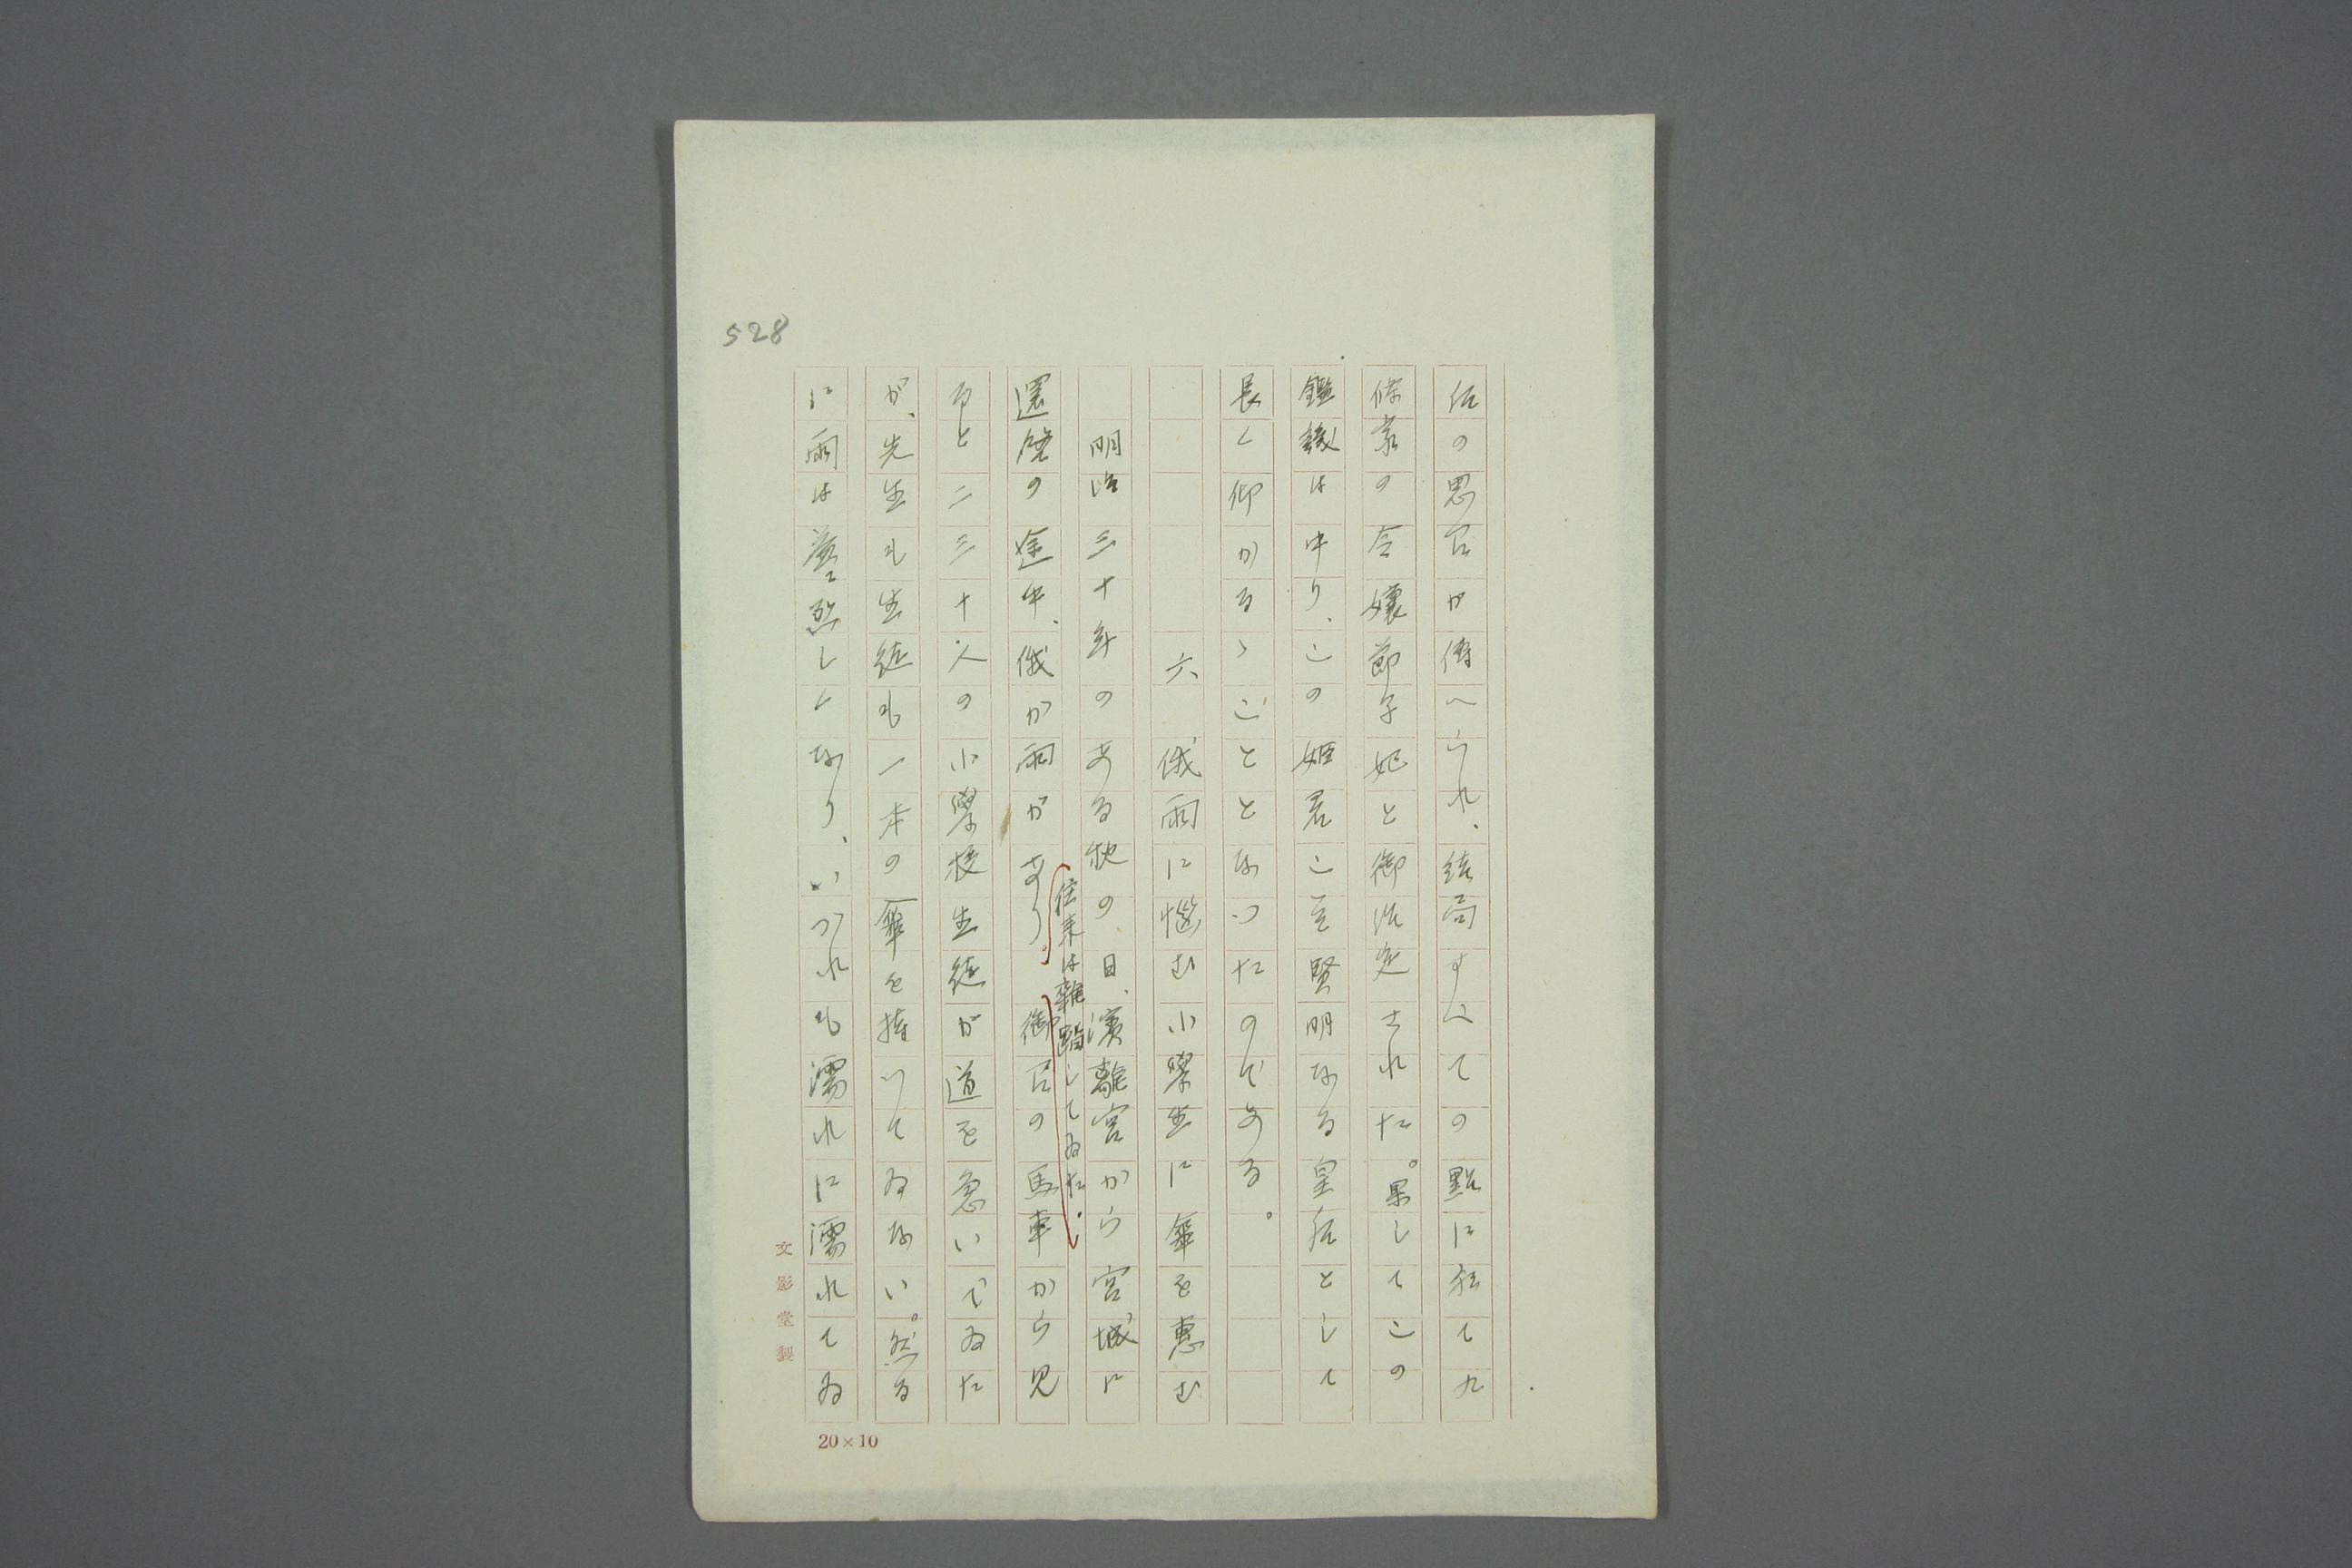 528
后の思召が傳へられ、結局すべての點に於て九
條家の令孃節子妃と御治定された。果してこの
鑑識は中り、この姬君こそ賢明なる皇后として
長く仰がるゝこととなつたのである。
六、俄雨に惱む小學生に傘を惠む
明治三十年のある秋の日、濱離宮から宮城に
還啓の途中、俄か雨があり。往来は雜踏してゐた。御召の馬車から見
ると二三十人の小學校生徒が道を急いでゐた
が、先生も生徒も一本の傘を持つてゐない。然る
に雨は益々烈しくなり、いづれも濡れに濡れてゐ
文影堂製
20×10